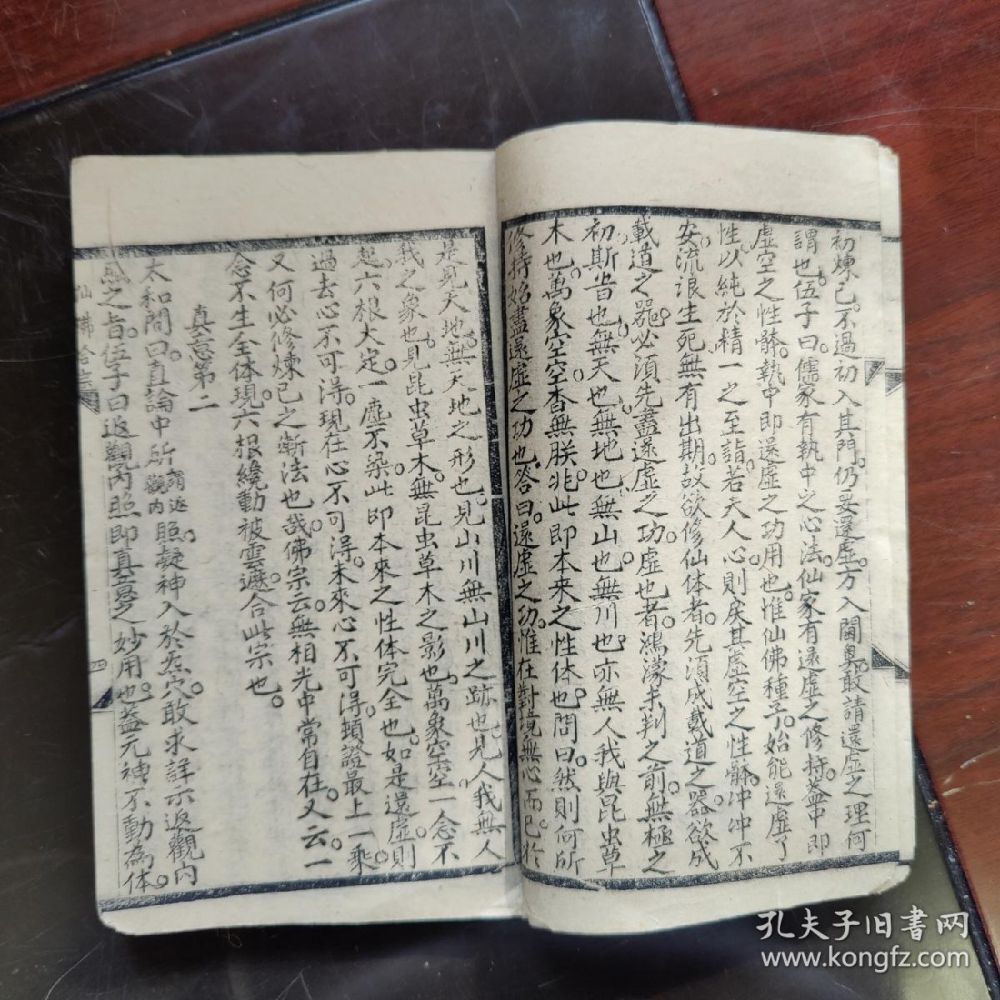 初煉己。不過初入其門。仍要還虛。方入閫奧。敢請還虛之理何
謂也。伍子曰。儒家有執中之心法。仙家有還虛之修持。蓋中即
虛空之性體。執中即還虛之功用也。惟仙佛種子。始能還虛了
性。以純於精一之至詣。若夫人心。則戾其虛空之性體。沖沖不
安。流浪生死。無有出期。故欲修仙体者。先須成載道之器。欲成
載道之器。必須先盡還虛之功。虛也者。鴻濛未判之前。無極之
初。斯旹也。無天也。無地也。無山也。無川也。亦無人我與昆虫草
木也。萬象空空。杳無朕兆。此即本来之性体也。問曰。然則何所
修持。始盡還虛之功也。答曰。還虛之功。惟在對境無心而已。於
是見天地。無天地之形也。見山川。無山川之跡也。見人我。無人
我之象也。見昆虫草木。無昆虫草木之影也。萬象空空。一念不
起。六根大定。一塵不染。此即本來之性体完全也。如是還虛。則
過去心不可得。現在心不可得。未來心不可得。頓證最上一乘。
又何必修煉己之漸法也哉。佛宗云。無相光中常自在。又云。一
念不生全体現。六根纔動被雲遮。合此宗也。
真意第二
太和問曰。直論中所謂返觀內照。凝神入於炁穴。敢求詳示返觀内
之旨。伍子曰。返觀內照。即真意之妙用也。蓋元神不動為体。
仙佛合宗
孔夫子旧書网
www.kongfz.com